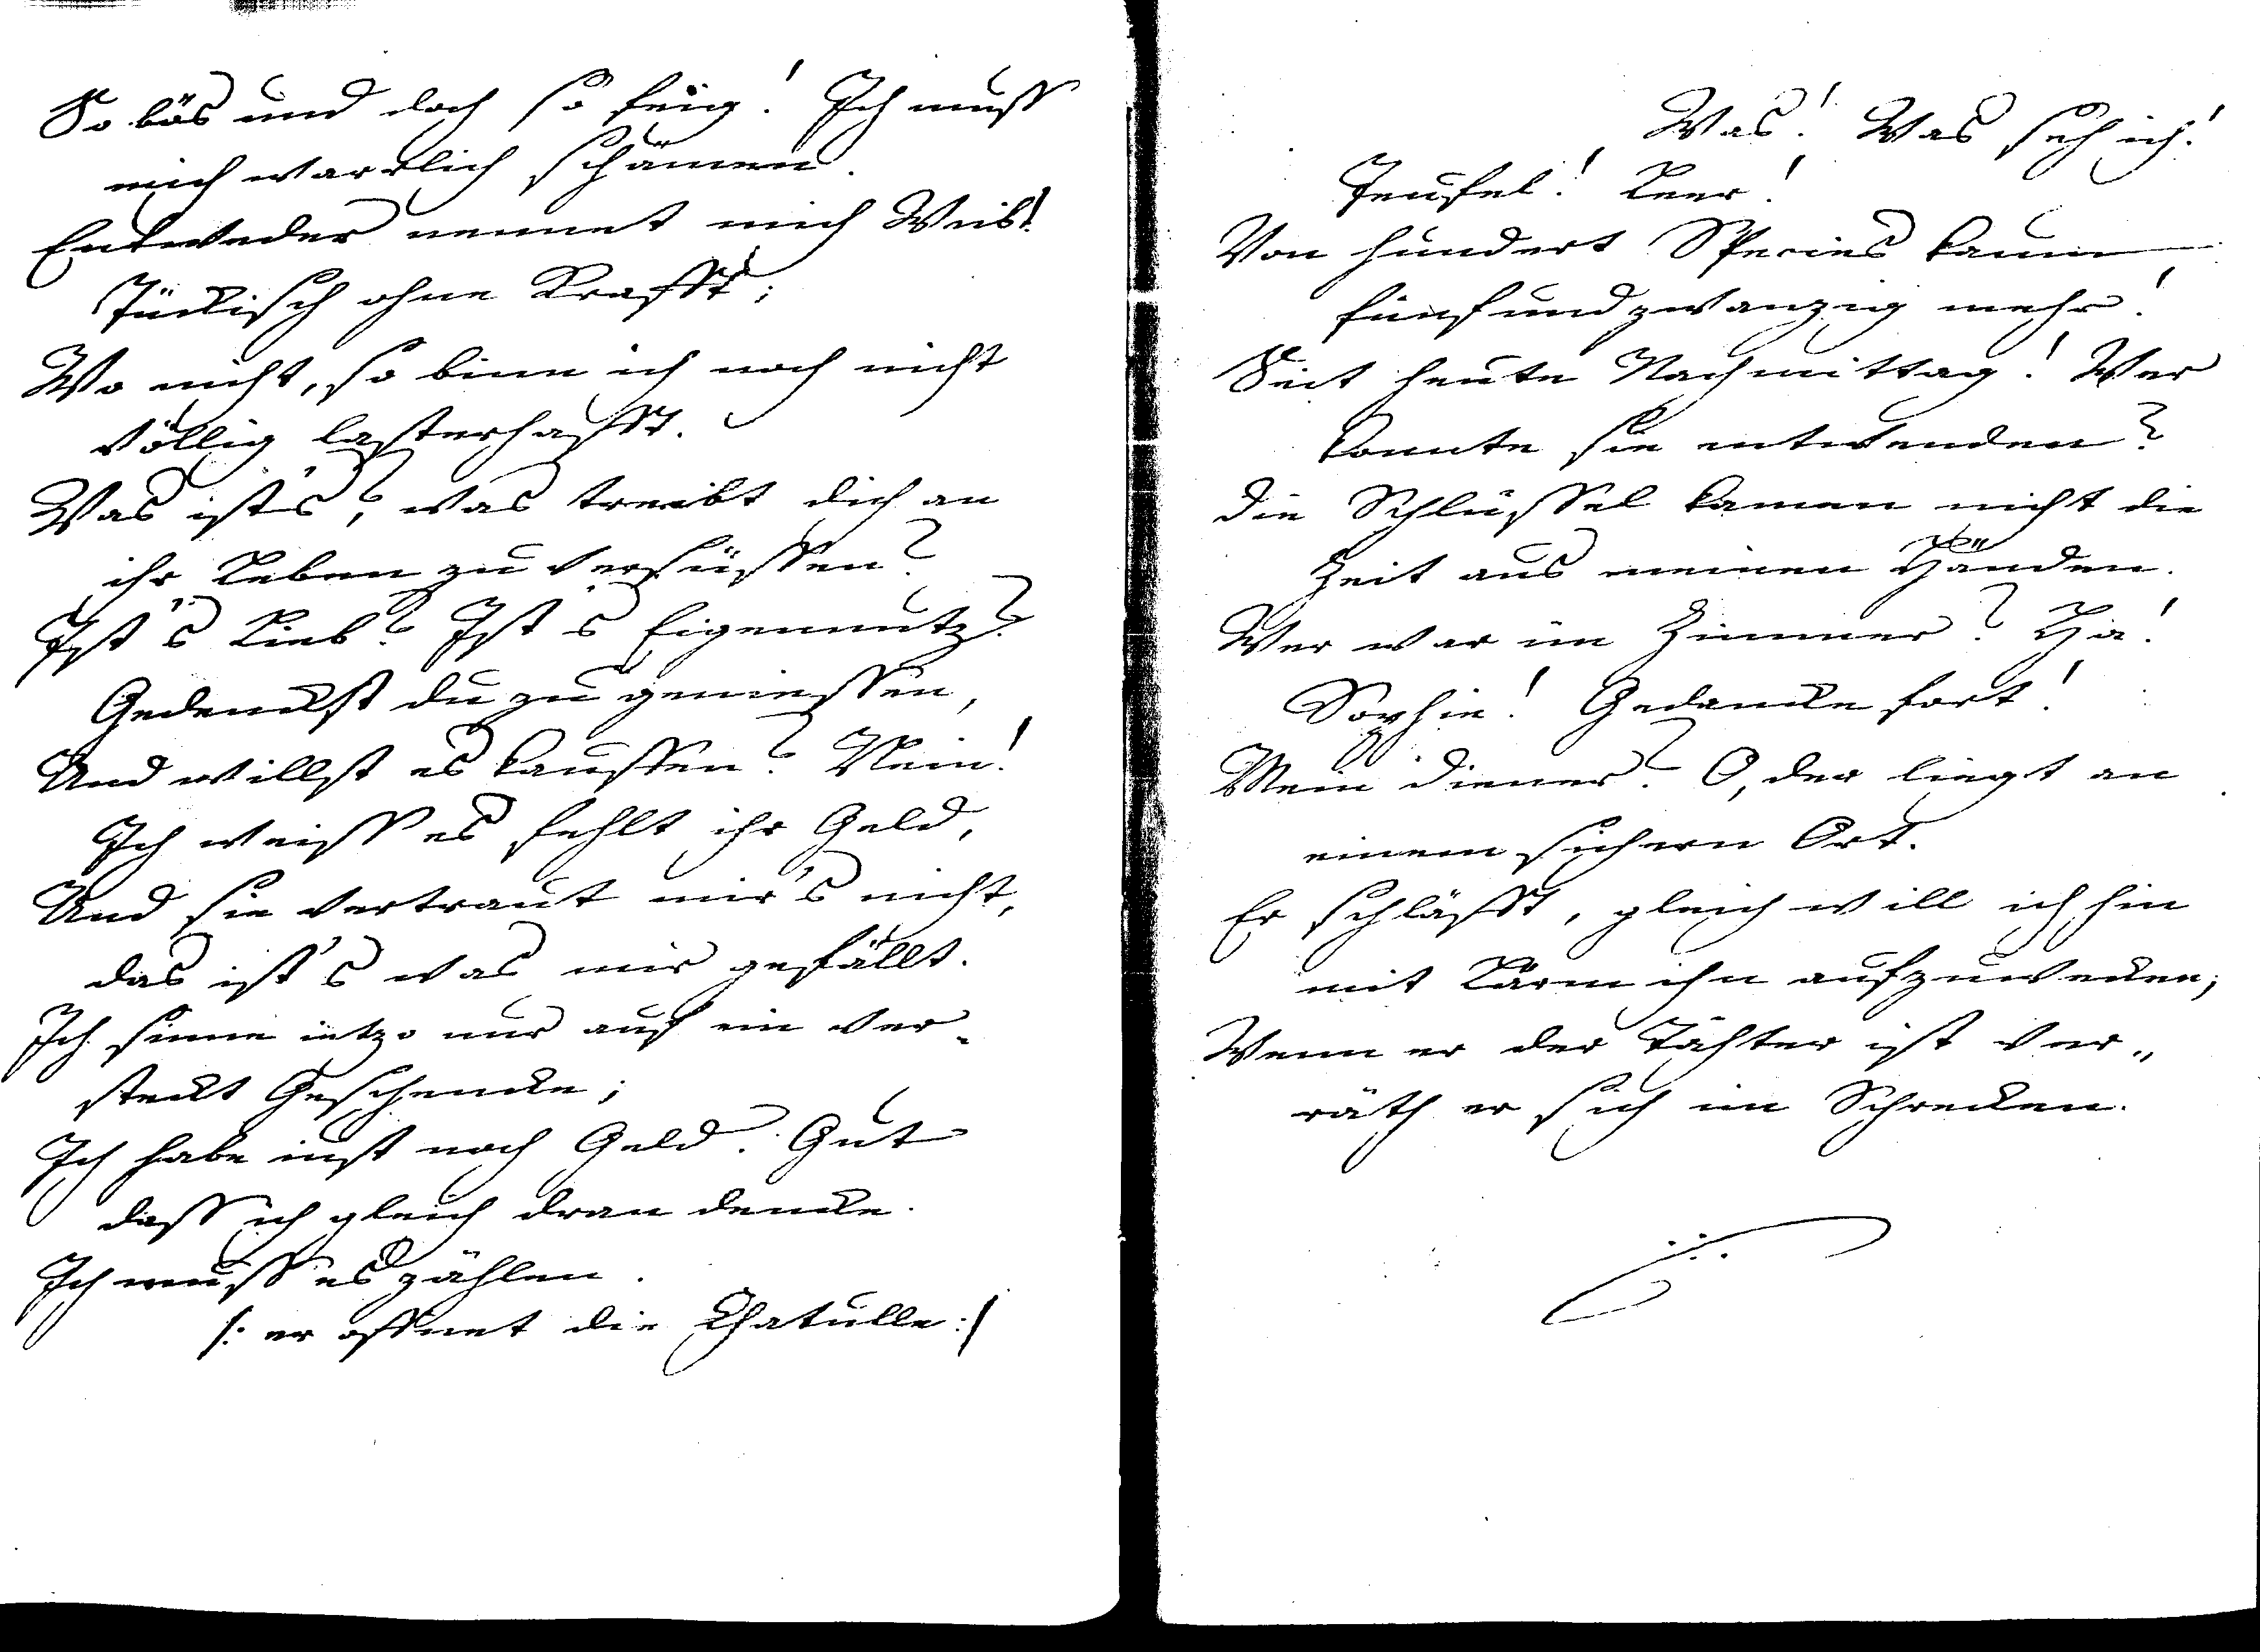 So bös und doch so feig! Ich muss
mich warrlich schämen.
Entweder nennet mich Weib!
Tückisch ohne Krafft;
Wo nicht, so binn ich noch nicht
völlig lasterhafft.
Was ist's? was treibt dich an
ihr Leben zu versüssen?
Ist's Lieb? Ist's Eigennutz?
Gedenckst du zu geniessen,
Und willst es kauffen? Nein!
Ich weiss es fehlt ihr Geld,
Und sie vertraut mir's nicht,
das ist's was mir gefällt.
Ich sinne ietzo nur auf ein ver-
steckt Geschencke;
Ich habe iust noch Geld. Gut
dass ich gleich dran dencke.
Ich muss es zählen.
/: er offnet die Chatulle :/
Was! Was seh ich!
Teufel! Leer!
Von hundert Species kaum
fünfundzwanzig mehr!
Seit heute Nachmittag! Wer
konnte sie entwenden?
Die Schlüssel kamen nicht die
Zeit aus meinen Händen.
Wer war im Zimmer? Ha!
Sophie! Gedancke fort!
Mein Diener? O, der liegt an
einem sichern Ort.
Er schläfft, gleich will ich hin
mit Lärm ihn aufzuwecken;
Wenn er der Tähter ist ver-
räth er sich im Schrecken.